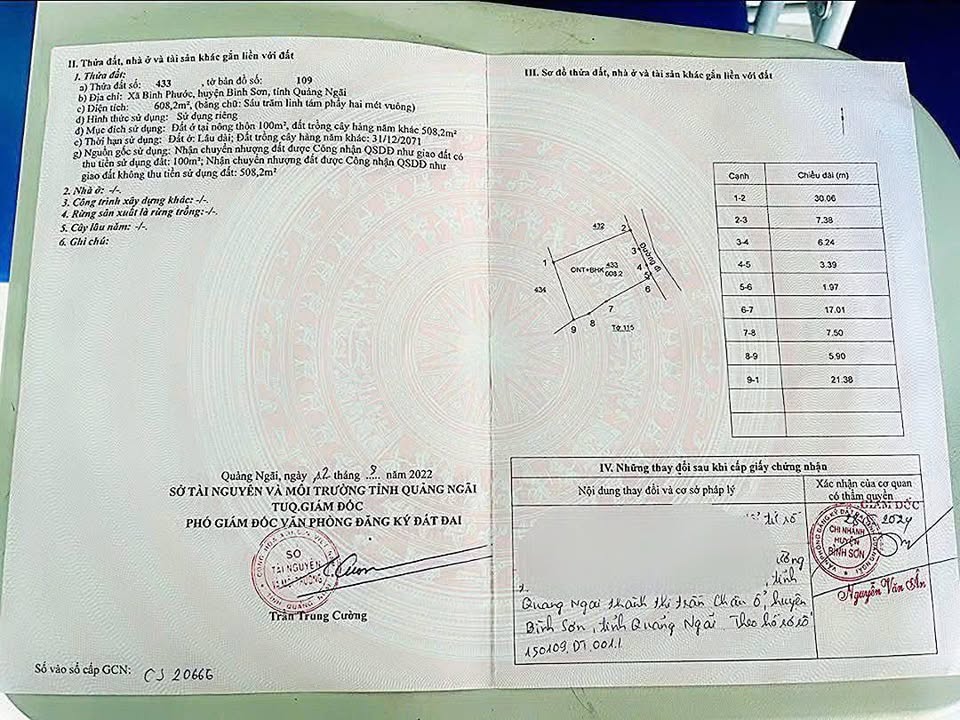 II. Thửa đất, nhà ở và tài sản khác gắn liền với đất
1. Thửa đất:
a) Thửa đất số: 433 , tờ bản đồ số: 109
b) Địa chỉ: Xã Bình Phước, huyện Bình Sơn, tỉnh Quảng Ngãi
c) Diện tích: 608,2m², (bằng chữ: Sáu trăm linh tám phẩy hai mét vuông)
d) Hình thức sử dụng: Sử dụng riêng
đ) Mục đích sử dụng: Đất ở tại nông thôn 100m², đất trồng cây hàng năm khác 508,2m²
e) Thời hạn sử dụng: Đất ở: Lâu dài; Đất trồng cây hàng năm khác: 31/12/2071
g) Nguồn gốc sử dụng: Nhận chuyển nhượng đất được Công nhận QSDĐ như giao đất có
thu tiền sử dụng đất: 100m²; Nhận chuyển nhượng đất được Công nhận QSDĐ như
giao đất không thu tiền sử dụng đất: 508,2m²
2. Nhà ở: -/-.
3. Công trình xây dựng khác: -/-.
4. Rừng sản xuất là rừng trồng:-/-.
5. Cây lâu năm: -/-.
6. Ghi chú:
Quảng Ngãi, ngày 12 tháng 9 năm 2022
SỞ TÀI NGUYÊN VÀ MÔI TRƯỜNG TỈNH QUẢNG NGÃI
TUQ.GIÁM ĐỐC
PHÓ GIÁM ĐỐC VĂN PHÒNG ĐĂNG KÝ ĐẤT ĐAI
SỞ
TÀI NGUYÊN
VÀ MÔI TRƯỜNG
Trần Trung Cường
Số vào sổ cấp GCN: CS 20666
III. Sơ đồ thửa đất, nhà ở và tài sản khác gắn liền với đất
432
1
2
3
4
5
6
7
8
9
Đường đi
ONT+BHK 433
608.2
434
Tờ 115
Cạnh Chiều dài (m)
1-2 30.06
2-3 7.38
3-4 6.24
4-5 3.39
5-6 1.97
6-7 17.01
7-8 7.50
8-9 5.90
9-1 21.38
IV. Những thay đổi sau khi cấp giấy chứng nhận
Nội dung thay đổi và cơ sở pháp lý
Xác nhận của cơ quan
có thẩm quyền
số
tỉnh
Quảng Ngãi thành thị trấn Châu Ổ, huyện
Bình Sơn, tỉnh Quảng Ngãi. Theo hồ sơ số
150109.DT.001.1
GIÁM ĐỐC
CHI NHÁNH
HUYỆN
BÌNH SƠN
Nguyễn Văn Sân